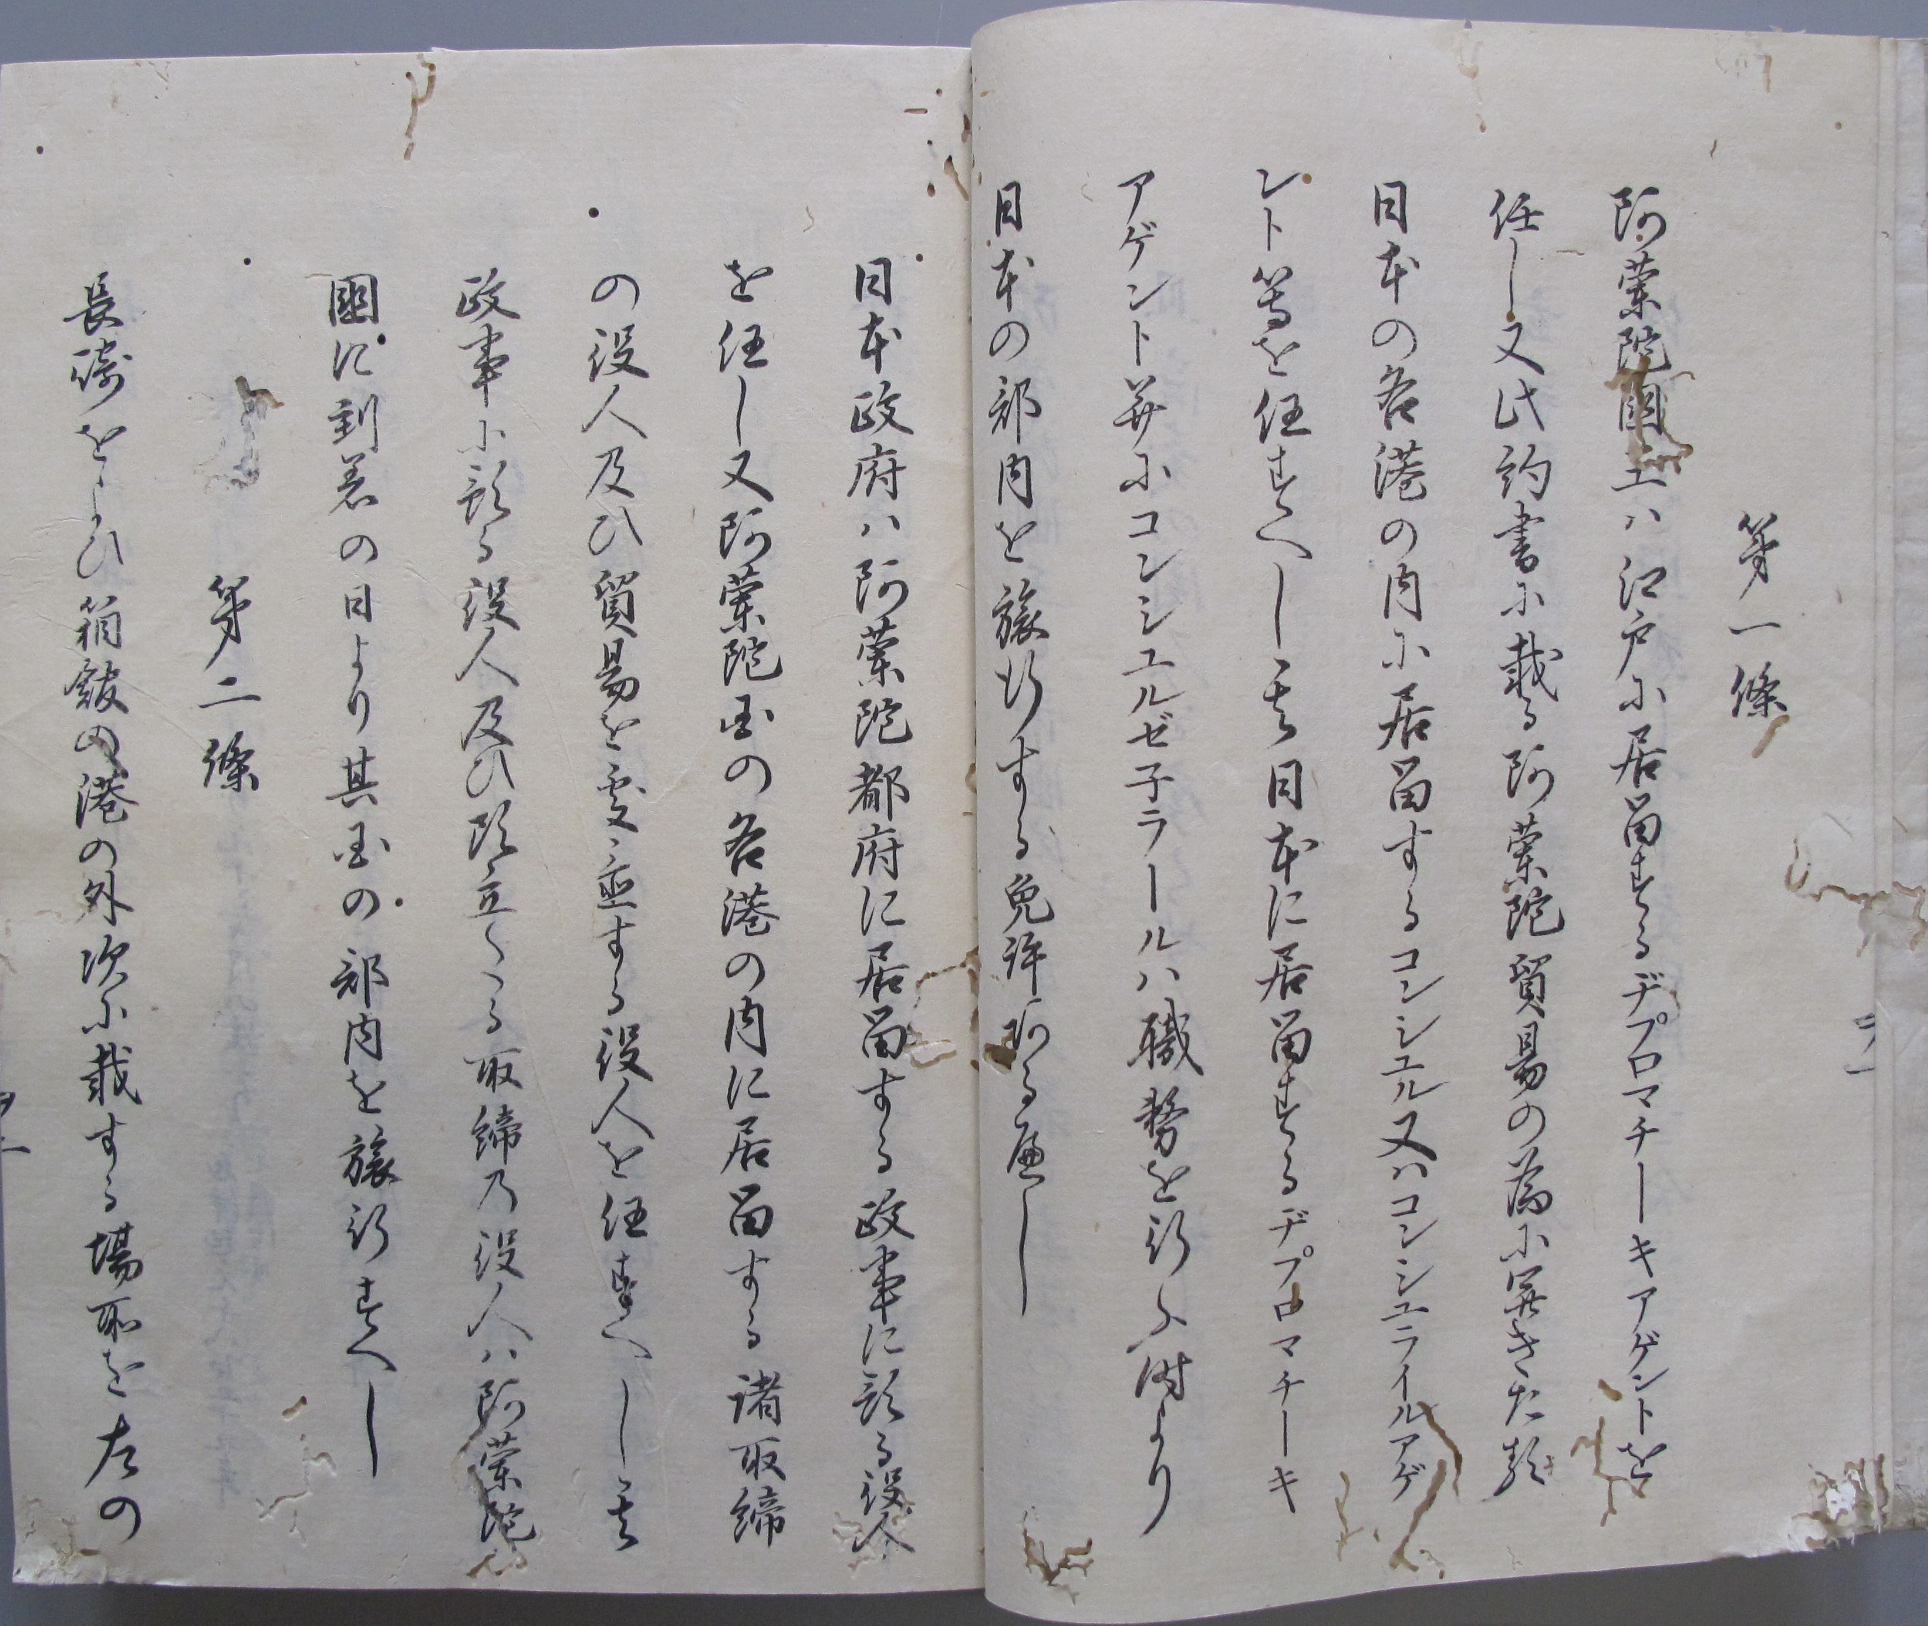 第一條
阿蘭陀國王ハ江戸に居留するヂプロマチーキアゲントを
任し又此約書に載る阿蘭陀貿易の為に開きたる
日本の各港の内に居留するコンシユル又ハコンシユライルアゲ
ント等を任すへし其日本に居留するヂプロマチーキ
アゲント并にコンシユルゼ子ラールハ職務を行ふ時より
日本の部内を旅行する免許ある遍し
日本政府ハ阿蘭陀都府に居留する政事に預る役人
を任し又阿蘭陀国の各港の内に居留する諸取締
の役人及ひ貿易を処置する役人を任すへし其
政事に預る役人及ひ頭立たる取締の役人ハ阿蘭陀
國に到着の日より其国の部内を旅行すへし
第二條
長崎およひ箱館の港の外次に載する場所を左の